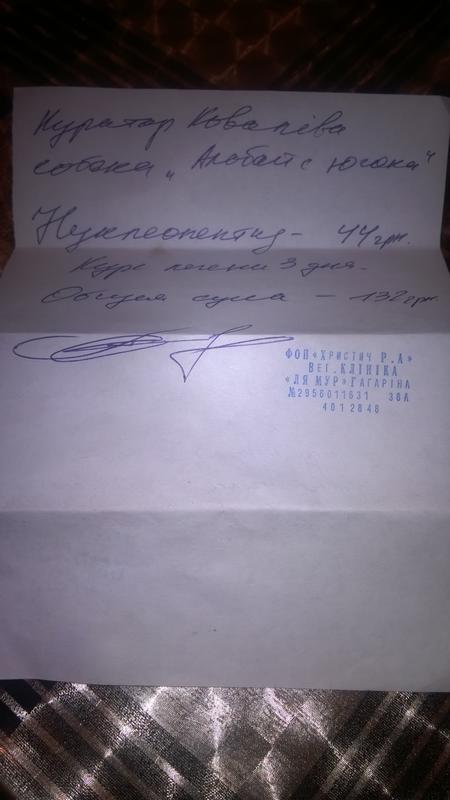 Куратор Ковалёва
собака „Алабай с югока"
Нуклеопептид - 44 грн.
Курс лечения 3 дня.
Общая сума - 132 грн.
ФОП «ХРИСТИЧ Р.А»
ВЕТ.КЛІНІКА
«ЛЯ МУР» ГАГАРІНА
№2956011631 38А
4012848